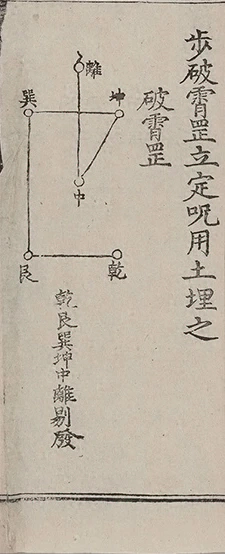 步破霄罡立定呪用土埋之
破霄罡
離
巽
坤
中
艮
乾
乾艮巽坤中離剔殿